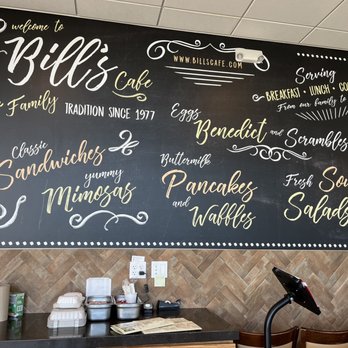 welcome to
Bill's Cafe
Family TRADITION SINCE 1977
WWW.BILLSCAFE.COM
Serving
BREAKFAST · LUNCH ·
From our family to
Eggs
Benedict and Scrambles
Classic
Sandwiches
yummy
Mimosas
Buttermilk
Pancakes
and
Waffles
Fresh
Salads